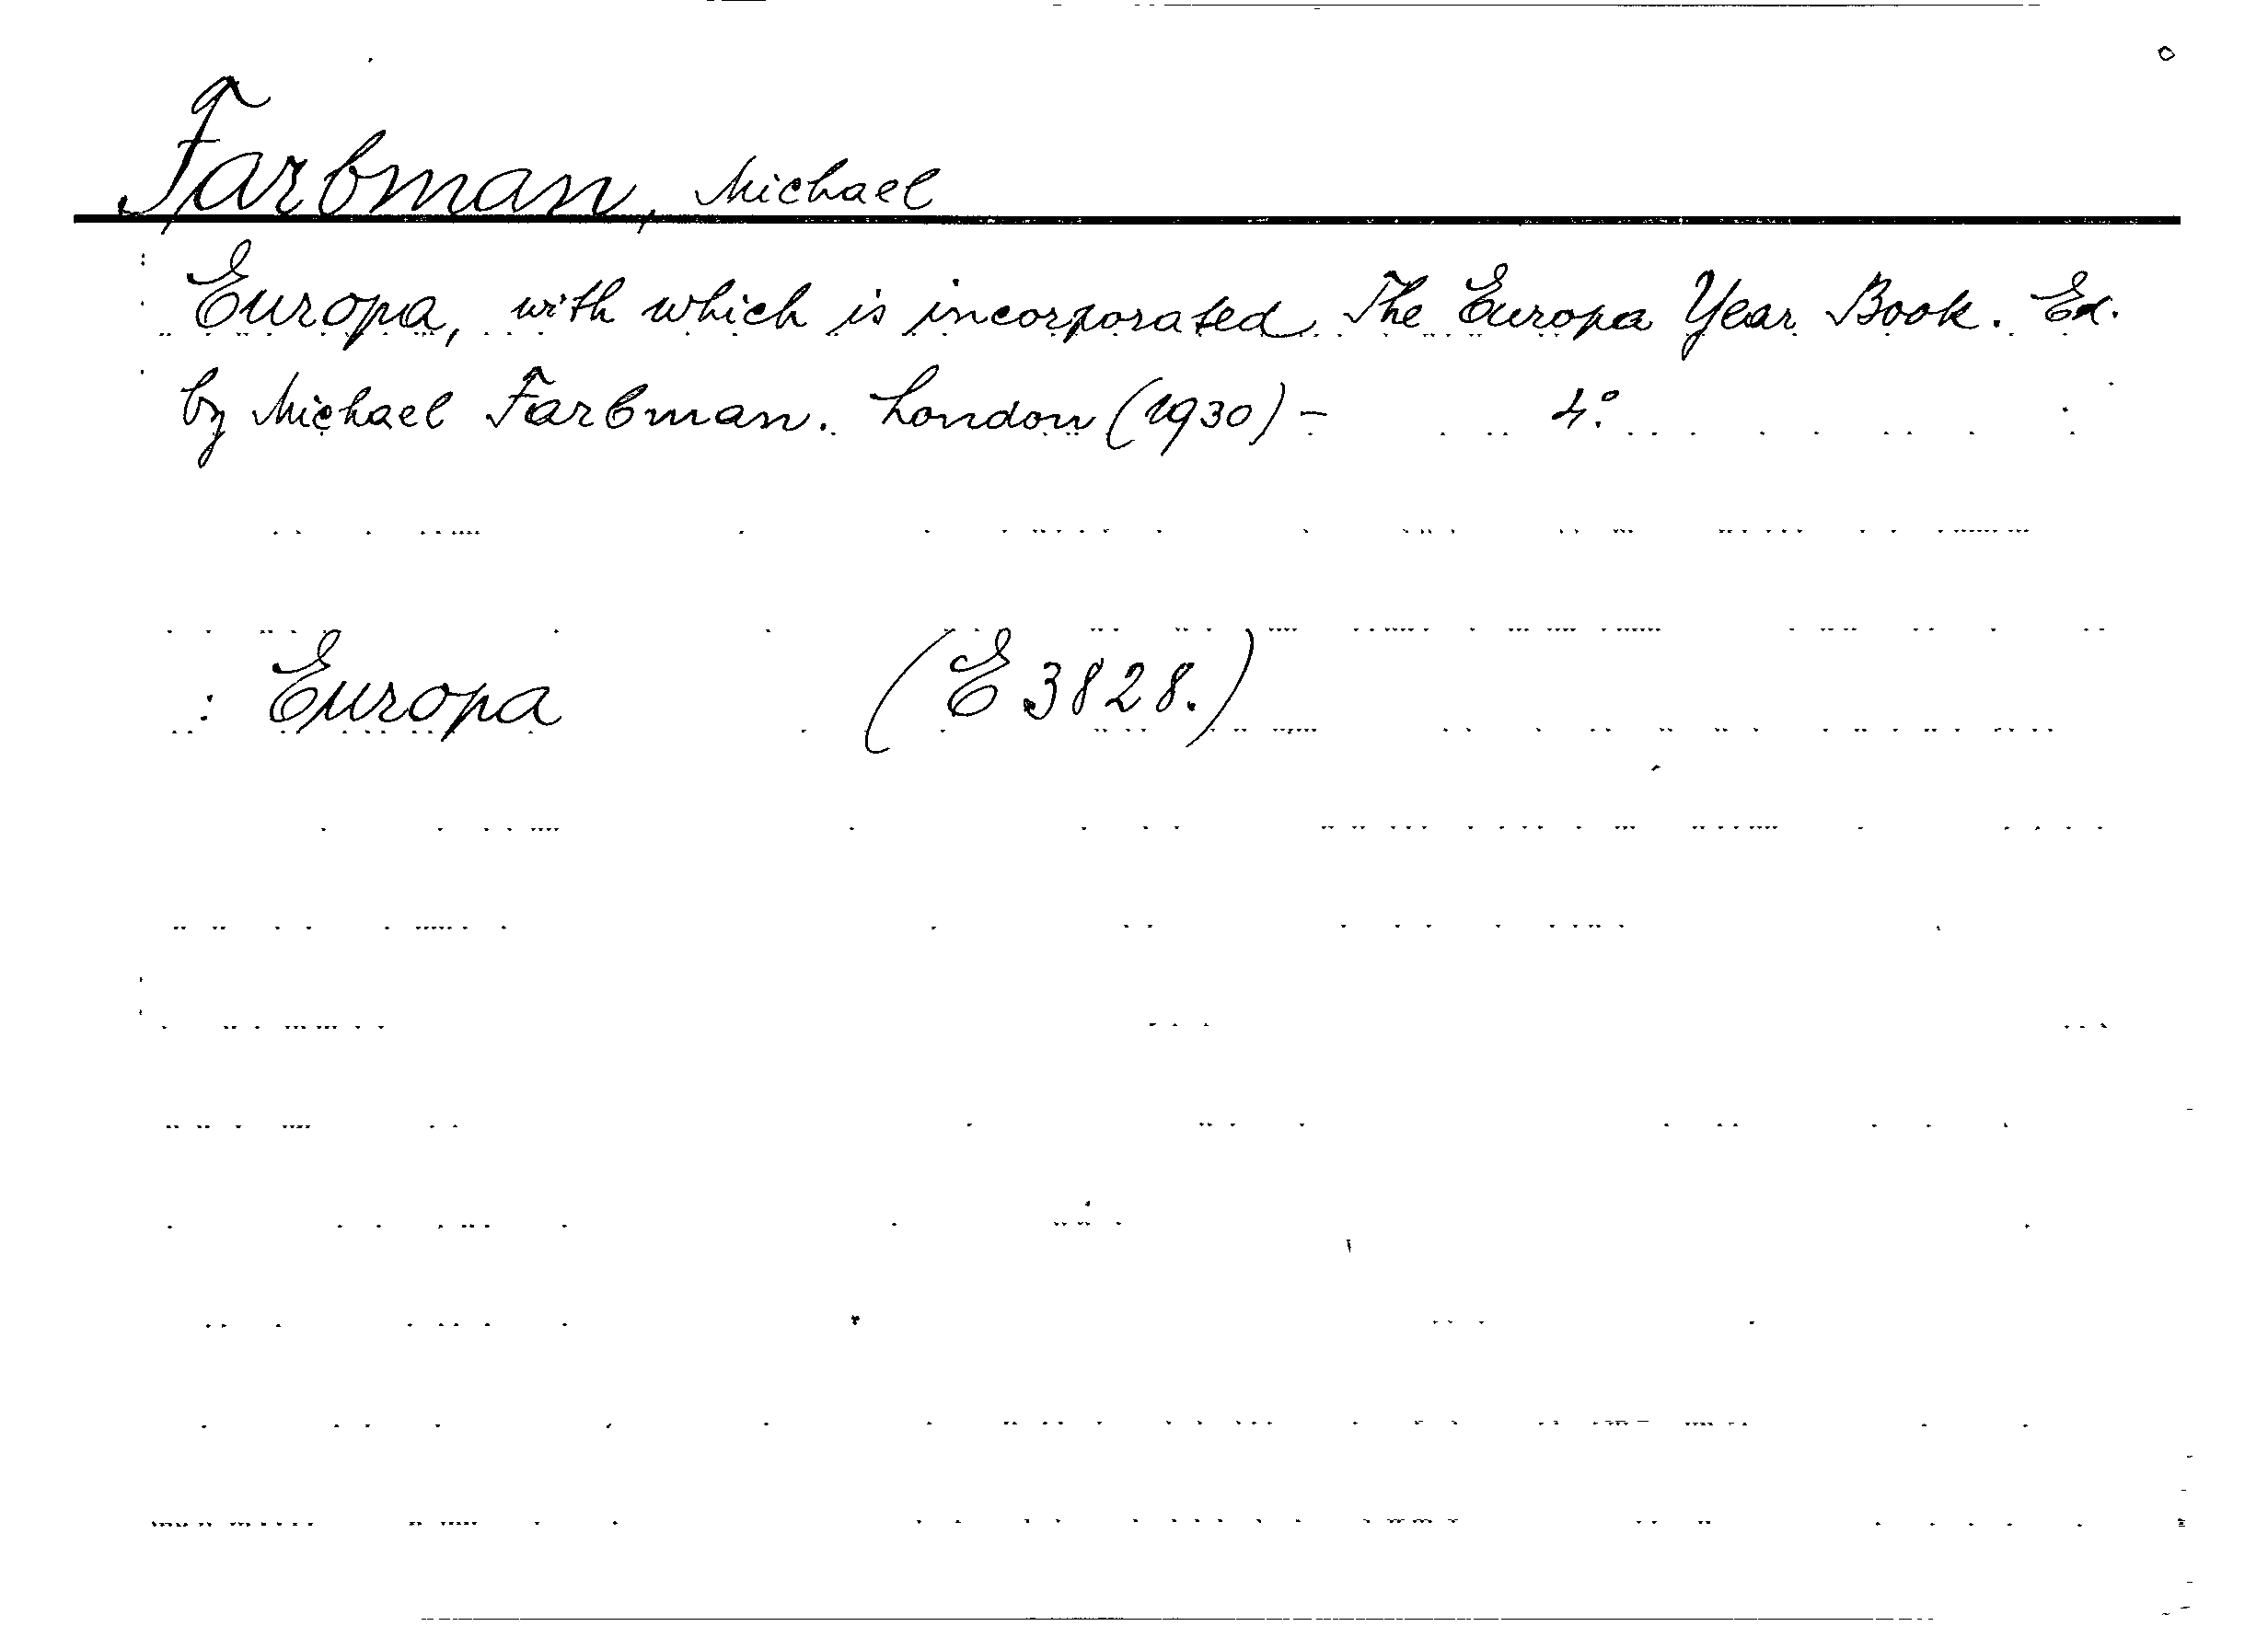 Farbman, Michael
Europa, with which is incorporated The Europa Year Book. Ed.
by Michael Farbman. London (1930) - 4:o
: Europa (E 3828.)